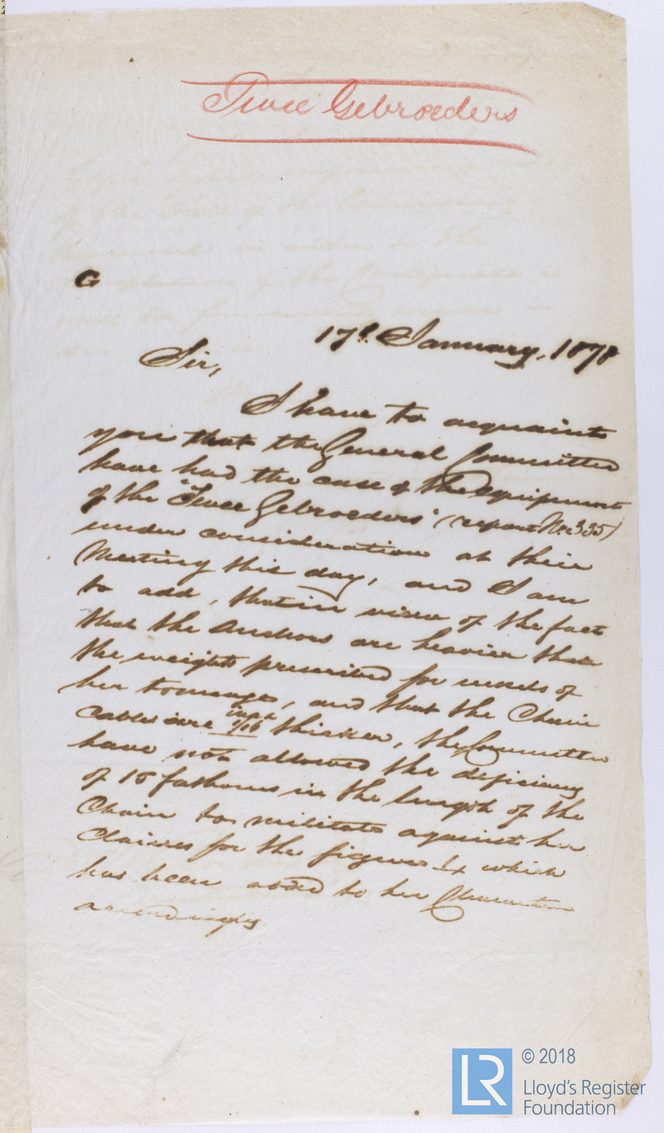 Twee Gebroeders
G
17th January, 1878
Sir,
I have to acquaint
you that the General Committee
have had the case of the Equipment
of the "Twee Gebroeders" (report No 335)
under consideration at their
Meeting this day, and I am
to add, that in view of the fact
that the Anchors are heavier than
the weights prescribed for vessels of
her tonnage, and that the Chain
cables are 1/16 inch thicker, the Committee
have not allowed the deficiency
of 15 fathoms in the length of the
Chain to militate against her
Claims for the figure 1, which
has been added to her Character
accordingly
© 2018
LR
Lloyd's Register
Foundation